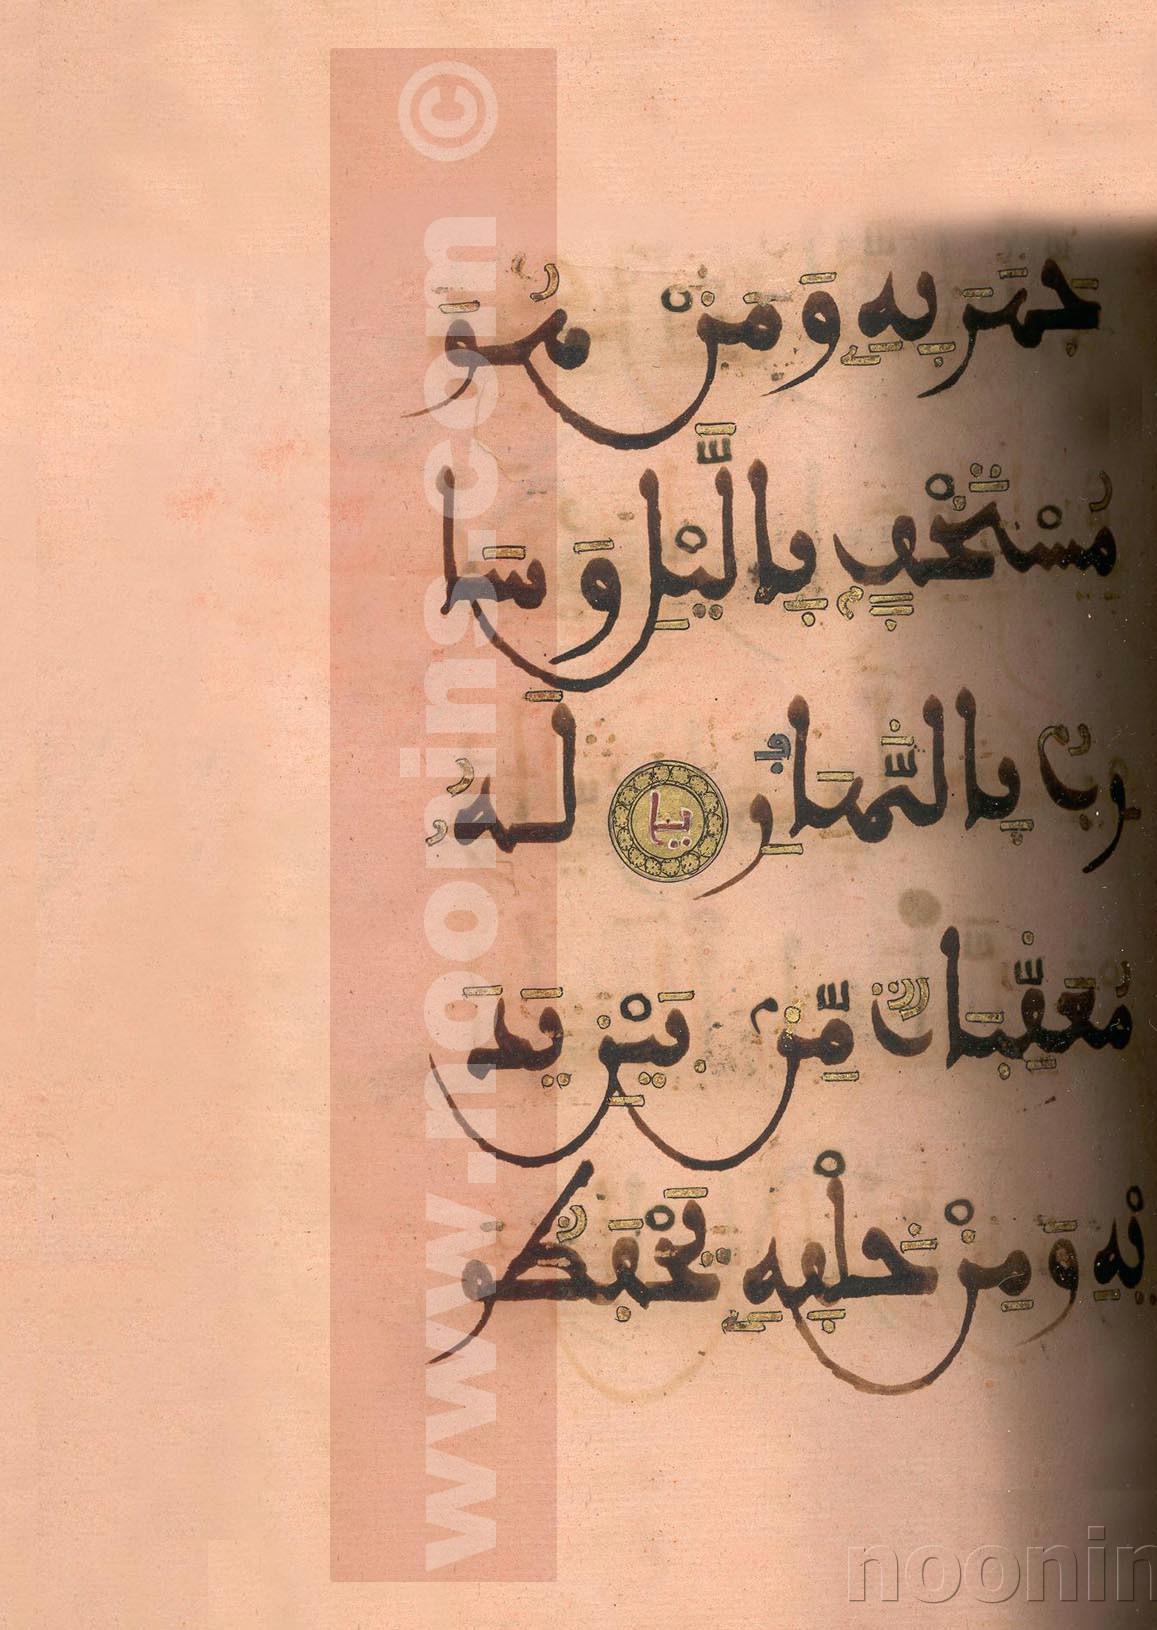 جَهَرَ بِهِ وَمَنْ هُوَ
مُسْتَخْفٍ بِالَّيْلِ وَسَا
رِبٌ بِالنَّهَارِ يا لَهُ
مُعَقِّبَاتٌ مِّنْ بَيْنِ يَدَ
يْهِ وَمِنْ خَلْفِهِ يَحْفَظُو
www.noonins-com ©
noonin